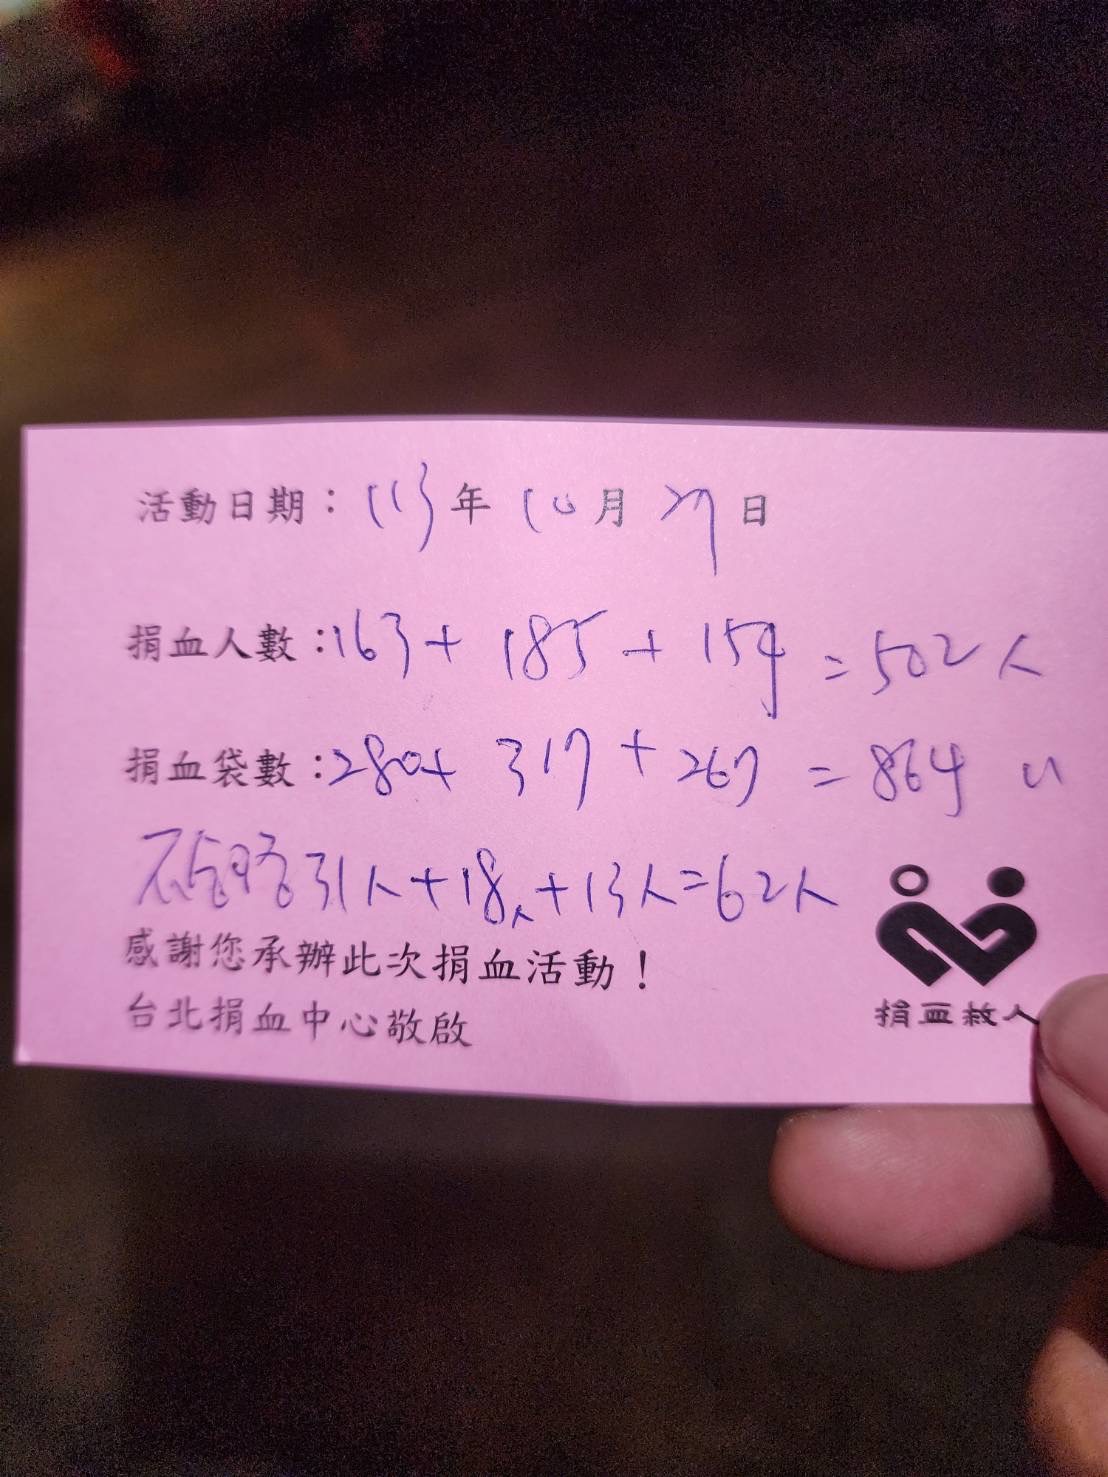 活動日期：113年10月27日
捐血人數：163+ 185 + 154 = 502人
捐血袋數：280+ 317 + 267 = 864 u
不合格31人+18人+13人=62人
感謝您承辦此次捐血活動！
台北捐血中心敬啟
捐血救人